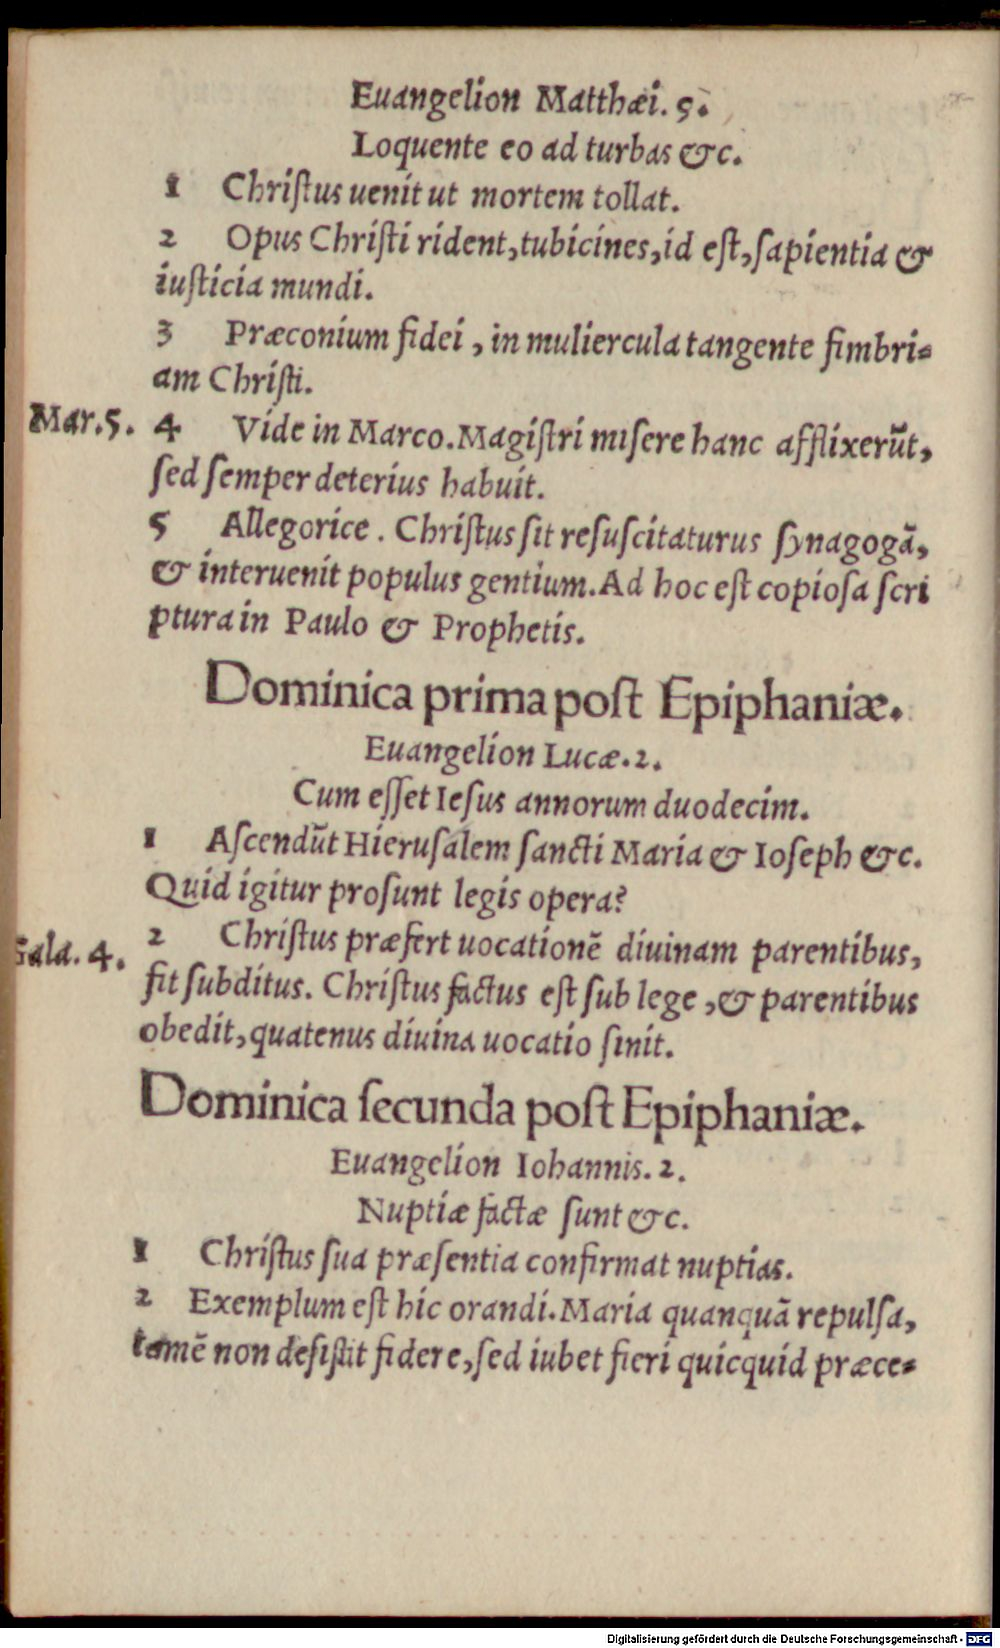 Euangelion Matthæi. 5.
Loquente eo ad turbas &c.
1 Chriſtus uenit ut mortem tollat.
2 Opus Chriſti rident, tubicines, id eſt, ſapientia &
iuſticia mundi.
3 Præconium fidei, in muliercula tangente fimbri⸗
am Chriſti.
Mar. 5. 4 Vide in Marco. Magiſtri miſere hanc afflixerūt,
ſed ſemper deterius habuit.
5 Allegorice. Chriſtus ſit reſuſcitaturus ſynagogā,
& interuenit populus gentium. Ad hoc eſt copioſa ſcri
ptura in Paulo & Prophetis.
Dominica prima poſt Epiphaniæ.
Euangelion Lucæ. 2.
Cum eſſet Ieſus annorum duodecim.
1 Aſcendūt Hieruſalem ſancti Maria & Ioſeph &c.
Quid igitur proſunt legis opera?
Gala. 4. 2 Chriſtus præfert uocationē diuinam parentibus,
fit ſubditus. Chriſtus factus eſt ſub lege, & parentibus
obedit, quatenus diuina uocatio ſinit.
Dominica ſecunda poſt Epiphaniæ.
Euangelion Iohannis. 2.
Nuptiæ factæ ſunt &c.
1 Chriſtus ſua præſentia confirmat nuptias.
2 Exemplum eſt hic orandi. Maria quanquā repulſa,
tamē non deſiſtit fidere, ſed iubet fieri quicquid præce⸗
Digitalisierung gefördert durch die Deutsche Forschungsgemeinschaft - DFG